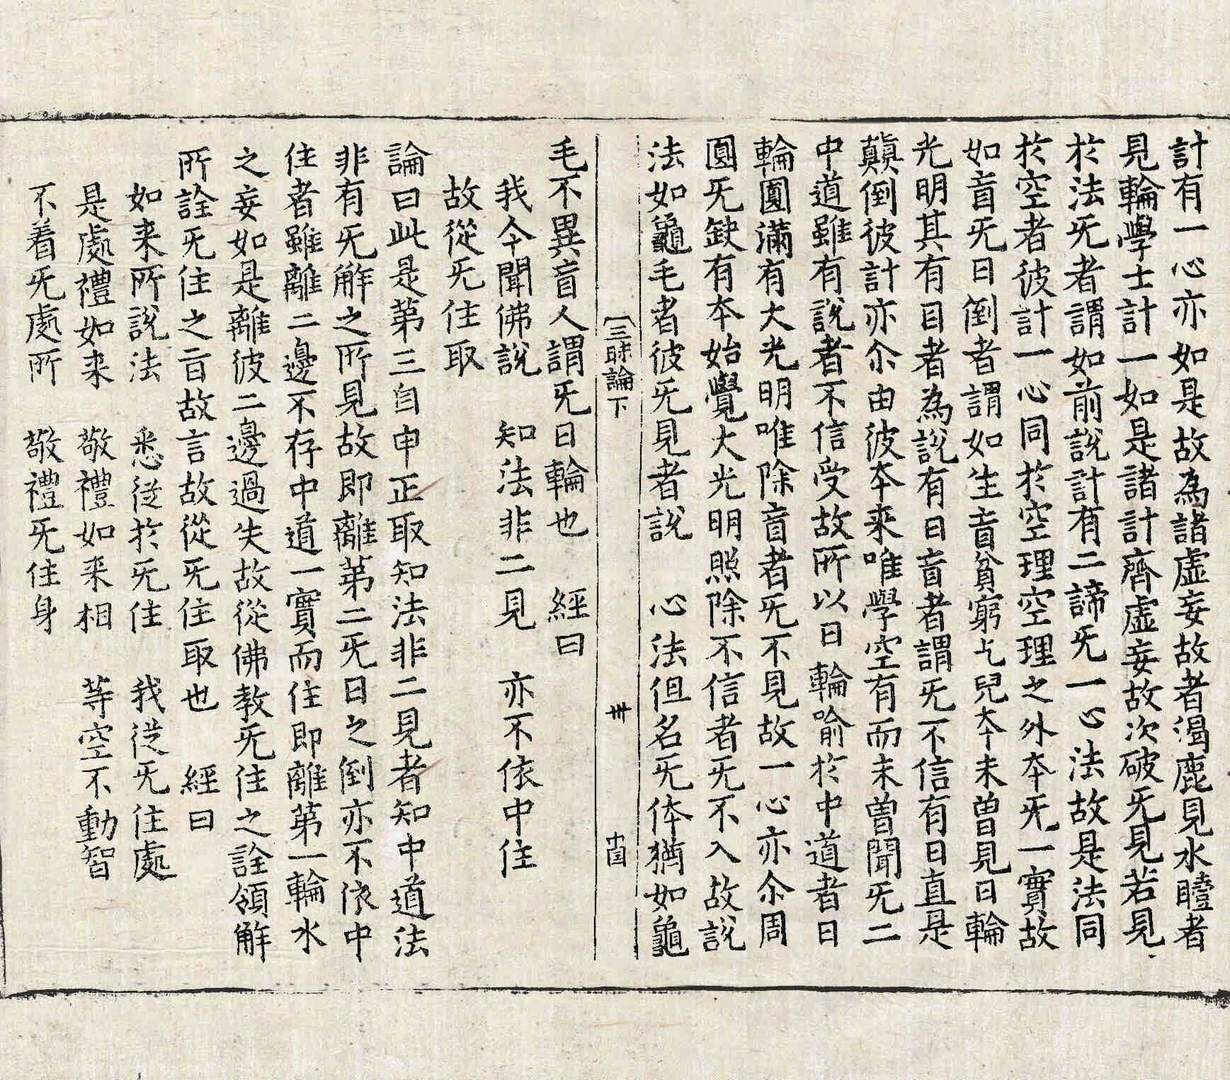 計有一心亦如是故為諸虛妄故者渴鹿見水瞪者
見輪學士計一如是諸計齊虛妄故次破旡見若見
於法旡者謂如前說計有二諦旡一心法故是法同
於空者彼計一心同於空理空理之外夲旡一實故
如盲旡日倒者謂如生盲貧窮乞兒夲未曽見日輪
光明其有目者為說有日盲者謂旡不信有日直是
顛倒彼計亦尒由彼夲来唯學空有而未曽聞旡二
中道雖有說者不信受故所以日輪喻於中道者日
輪圓滿有大光明唯除盲者旡不見故一心亦尒周
圓旡缺有夲始覺大光明照除不信者旡不入故說
法如龜毛者彼旡見者說　心法但名旡体猶如龜
三昧論下　卅　十囯
毛不異盲人謂旡日輪也　經曰
我今聞佛說　知法非二見　亦不依中住
故從旡住取
論曰此是第三自申正取知法非二見者知中道法
非有旡解之所見故即離第二旡日之倒亦不依中
住者雖離二邊不存中道一實而住即離第一輪水
之妄如是離彼二邊過失故從佛教旡住之詮領解
所詮旡住之旨故言故從旡住取也　經曰
如来所說法　悉從於旡住　我從旡住處
是處禮如来　敬禮如来相　等空不動智
不着旡處所　敬禮旡住身